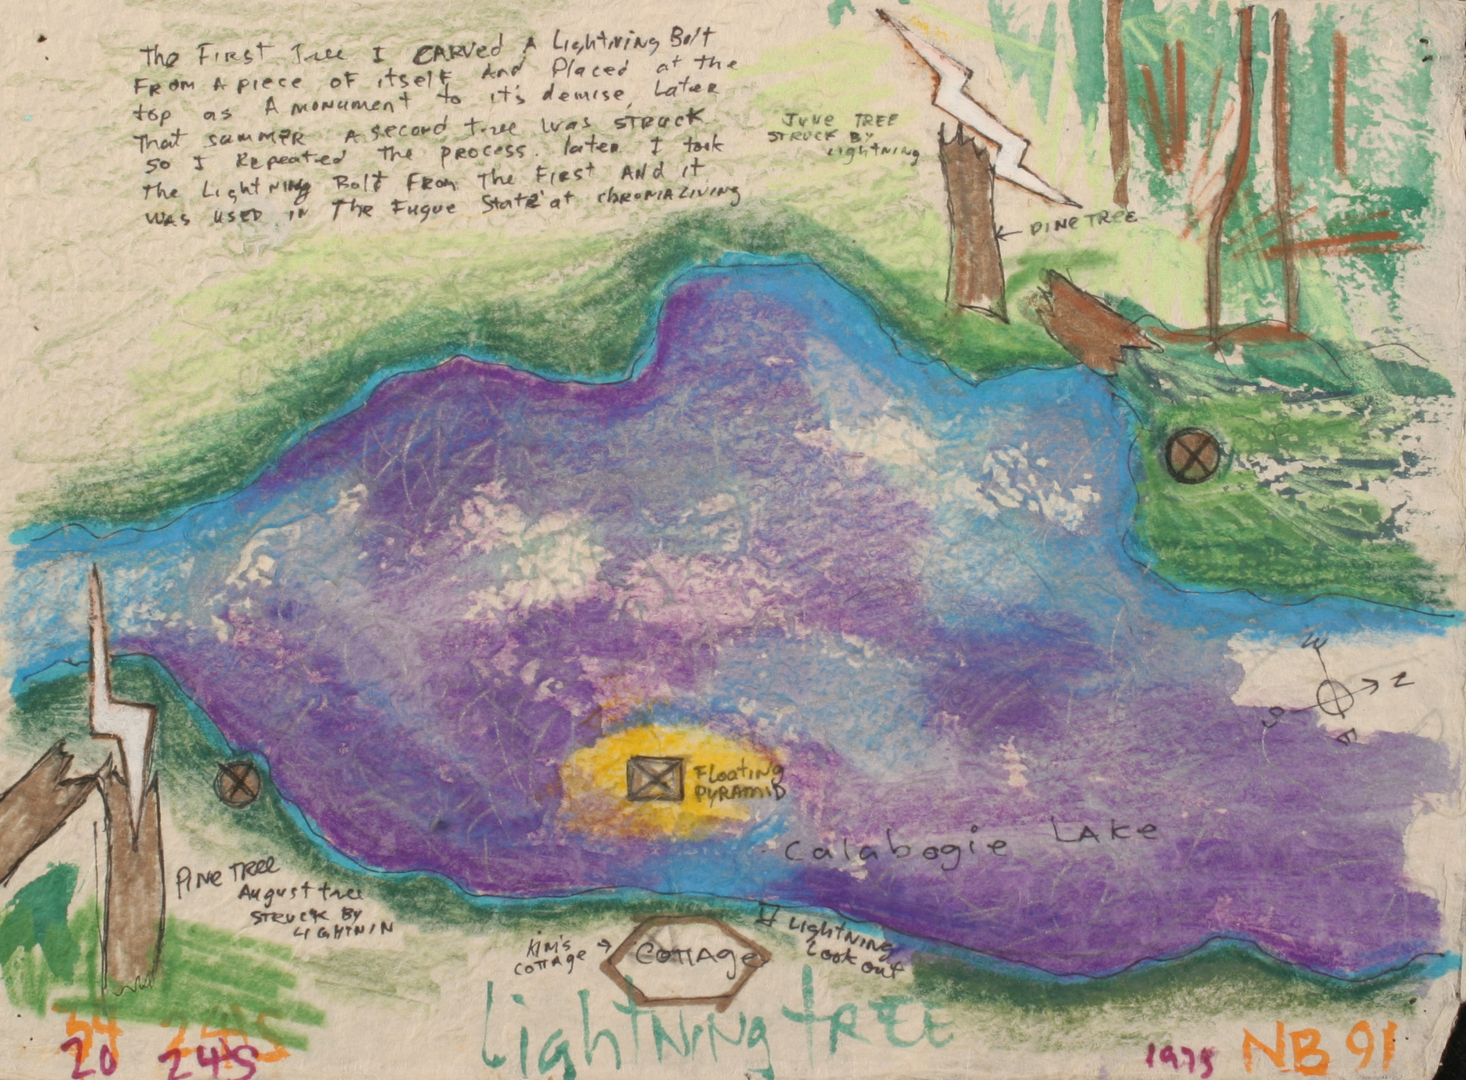 The First Tree I CARVed A Lightning Bolt
From A piece of itself And Placed at the
top as A monument to it's demise. Later
That summer A second tree was STRUCK
so I Repeated The process. later I took
The Lightning Bolt From The First And it
was used in The Fugue State at chromaliving
JUNE TREE
STRUCK BY
Lightning
PINE TREE
W
N
S
E
Floating
PYRAMID
Calabogie LAKe
PINE TREE
August tree
STRUCK BY
LIGHTNIN
Kim's
Cottage
COTTAge
Lightning
Look out
Lightning TREE
20 24S
1975 NB 91